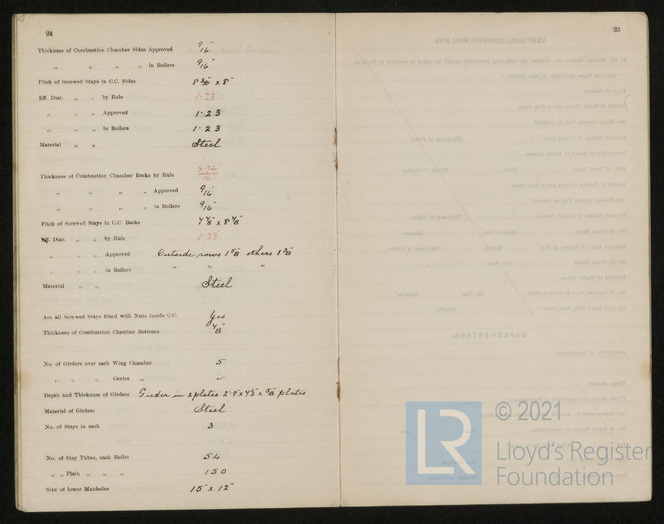 24
Thickness of Combustion Chamber Sides Approved 9/16"
„ „ „ „ in Boilers 9/16"
Pitch of Screwed Stays in C.C. Sides 8 3/8" x 8"
Eff. Diar. „ „ by Rule 1·23
„ „ „ Approved 1·23
„ „ „ in Boilers 1·23
Material „ „ Steel
Thickness of Combustion Chamber Backs by Rule
„ „ „ „ Approved 9/16"
„ „ „ „ in Boilers 9/16"
Pitch of Screwed Stays in C.C. Backs
Eff. Diar. „ „ by Rule 1·23
„ „ „ Approved Outside rows 1 5/8" others 1 3/8"
„ „ „ in Boilers „ „ „
Material „ „ Steel
Are all Screwed Stays fitted with Nuts inside C.C. Yes
Thickness of Combustion Chamber Bottoms
No. of Girders over each Wing Chamber 5
„ „ „ Centre „
Depth and Thickness of Girders Girder in 2 plates 2'-9" x 4½ x 5/8 plates
Material of Girders Steel
No. of Stays in each 3
No. of Stay Tubes, each Boiler 54
„ „ Plain „ „ „ 150
Size of lower Manholes 15" x 12"
25
LR
© 2021
Lloyd's Register
Foundation